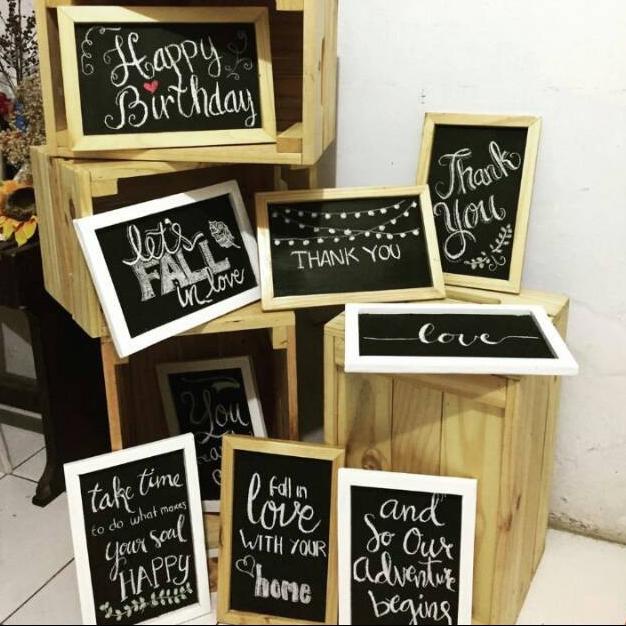 Happy
Birthday
Thank
You
let's
FALL
in love
THANK YOU
love
You
take time
to do what makes
your soul
HAPPY
fall in
love
WITH YOUR
home
and
so our
adventure
begins